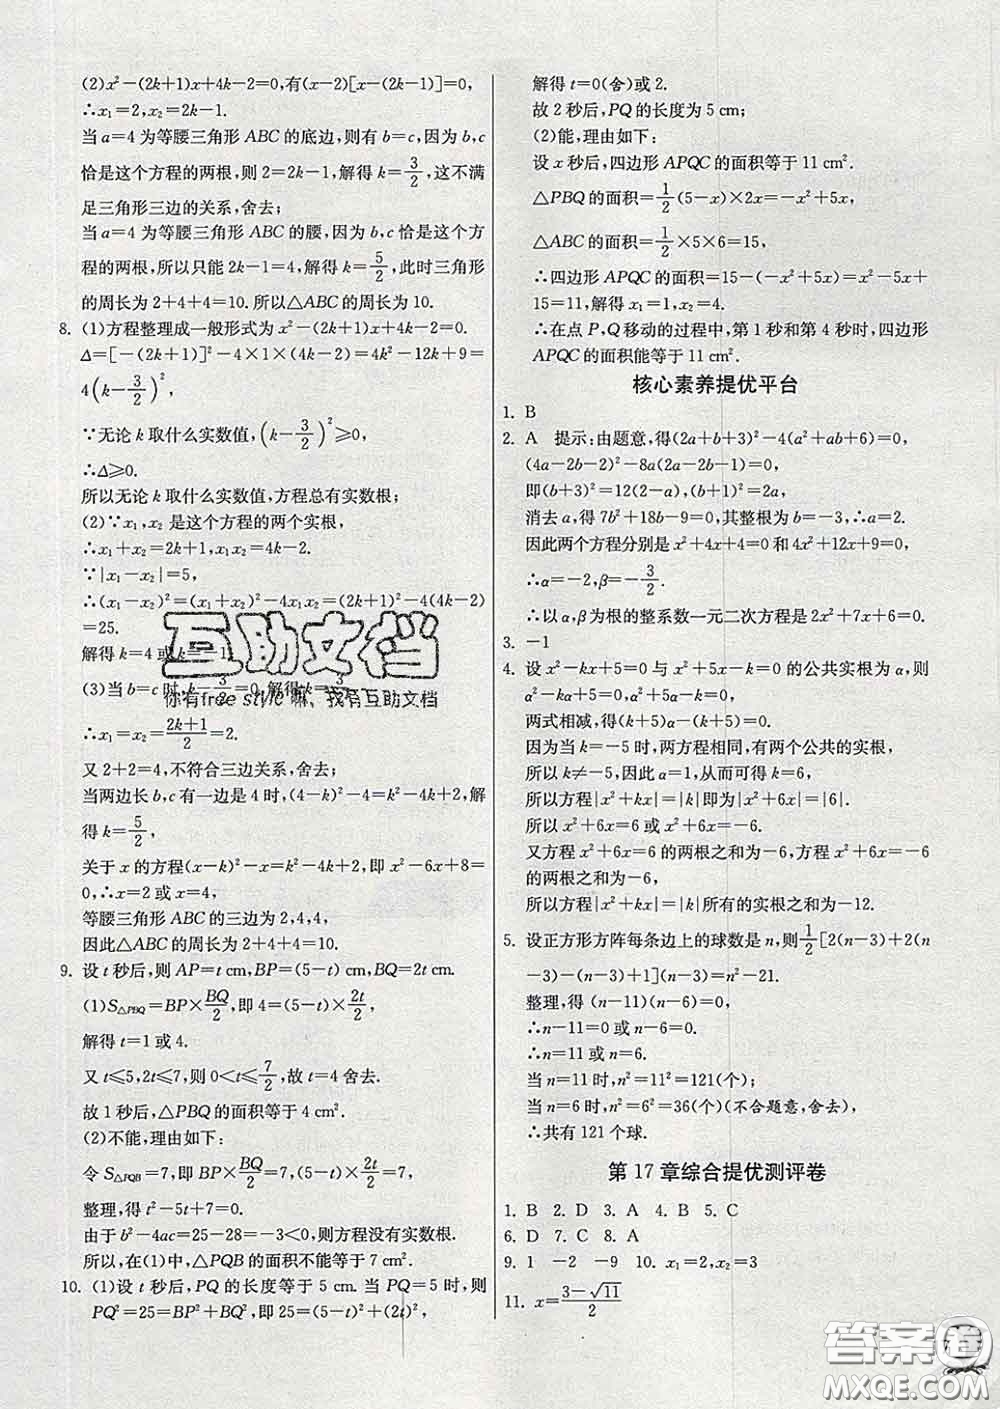 (2)x²-(2k+1)x+4k-2=0,有(x-2)[x-(2k-1)]=0,
∴x₁=2,x₂=2k-1.
当 a=4 为等腰三角形 ABC 的底边,则有 b=c,因为 b,c
恰是这个方程的两根,则 2=2k-1,解得 k=3/2,这不满
足三角形三边的关系,舍去;
当 a=4 为等腰三角形 ABC 的腰,因为 b,c 恰是这个方
程的两根,所以只能 2k-1=4,解得 k=5/2,此时三角形
的周长为 2+4+4=10.所以△ABC 的周长为 10.
8. (1)方程整理成一般形式为 x²-(2k+1)x+4k-2=0.
Δ=[-(2k+1)]²-4×1×(4k-2)=4k²-12k+9=
4(k-3/2)²,
∵无论 k 取什么实数值,(k-3/2)²≥0,
∴Δ≥0.
所以无论 k 取什么实数值,方程总有实数根;
(2)∵x₁,x₂ 是这个方程的两个实根,
∴x₁+x₂=2k+1,x₁x₂=4k-2.
∵|x₁-x₂|=5,
∴(x₁-x₂)²=(x₁+x₂)²-4x₁x₂=(2k+1)²-4(4k-2)
=25.
解得 k=4 或 k=-1.
(3)当 b=c 时,k-3/2=0,解得 k=3/2,
∴x₁=x₂=(2k+1)/2=2.
又 2+2=4,不符合三边关系,舍去;
当两边长 b,c 有一边是 4 时,(4-k)²-4=k²-4k+2,解
得 k=5/2,
关于 x 的方程(x-k)²-x=k²-4k+2,即 x²-6x+8=
0,∴x=2 或 x=4,
等腰三角形 ABC 的三边为 2,4,4,
因此△ABC 的周长为 2+4+4=10.
9. 设 t 秒后,则 AP=t cm,BP=(5-t) cm,BQ=2t cm.
(1)S△PBQ=BP×BQ/2,即 4=(5-t)×2t/2,
解得 t=1 或 4.
又 t≤5,2t≤7,则 0<t≤7/2,故 t=4 舍去.
故 1 秒后,△PBQ 的面积等于 4 cm².
(2)不能,理由如下:
令 S△PQB=7,即 BP×BQ/2=7,(5-t)×2t/2=7,
整理,得 t²-5t+7=0.
由于 b²-4ac=25-28=-3<0,则方程没有实数根.
所以,在(1)中,△PQB 的面积不能等于 7 cm².
10. (1)设 t 秒后,PQ 的长度等于 5 cm. 当 PQ=5 时,则
PQ²=25=BP²+BQ²,即 25=(5-t)²+(2t)²,
解得 t=0(舍)或 2.
故 2 秒后,PQ 的长度为 5 cm;
(2)能,理由如下:
设 x 秒后,四边形 APQC 的面积等于 11 cm².
△PBQ 的面积=1/2(5-x)×2x=-x²+5x,
△ABC 的面积=1/2×5×6=15,
∴四边形 APQC 的面积=15-(-x²+5x)=x²-5x+
15=11,解得 x₁=1,x₂=4.
∴在点 P,Q 移动的过程中,第 1 秒和第 4 秒时,四边形
APQC 的面积能等于 11 cm².
核心素养提优平台
1. B
2. A 提示:由题意,得(2a+b+3)²-4(a²+ab+6)=0,
(4a-2b-2)²-8a(2a-2b-1)=0,
即(b+3)²=12(2-a),(b+1)²=2a,
消去 a,得 7b²+18b-9=0,其整根为 b=-3,∴a=2.
因此两个方程分别是 x²+4x+4=0 和 4x²+12x+9=0,
∴α=-2,β=-3/2.
∴以 α,β为根的整系数一元二次方程是 2x²+7x+6=0.
3. -1
4. 设 x²-kx+5=0 与 x²+5x-k=0 的公共实根为 α,则
α²-kα+5=0,α²+5α-k=0,
两式相减,得(k+5)α-(5+k)=0.
因为当 k=-5 时,两方程相同,有两个公共的实根,
所以 k≠-5,因此 α=1,从而可得 k=6,
所以方程|x²+kx|=|k|即为|x²+6x|=|6|.
所以 x²+6x=6 或 x²+6x=-6.
又方程 x²+6x=6 的两根之和为-6,方程 x²+6x=-6
的两根之和为-6,
所以方程|x²+kx|=|k|所有的实根之和为-12.
5. 设正方形方阵每条边上的球数是 n,则1/2[2(n-3)+2(n
-3)-(n-3)+1](n-3)=n²-21.
整理,得 (n-11)(n-6)=0.
∴n-11=0 或 n-6=0.
∴n=11 或 n=6.
当 n=11 时,n²=11²=121(个);
当 n=6 时,n²=6²=36(个)(不合题意,舍去),
∴共有 121 个球.
第 17 章综合提优测评卷
1. B 2. D 3. A 4. B 5. C
6. D 7. C 8. A
9. 1 -2 -9 10. x₁=2,x₂=3
11. x=(3-√11)/2
互助文档
你有free style 嘛,我有互助文档
答案圈
MXQE.COM